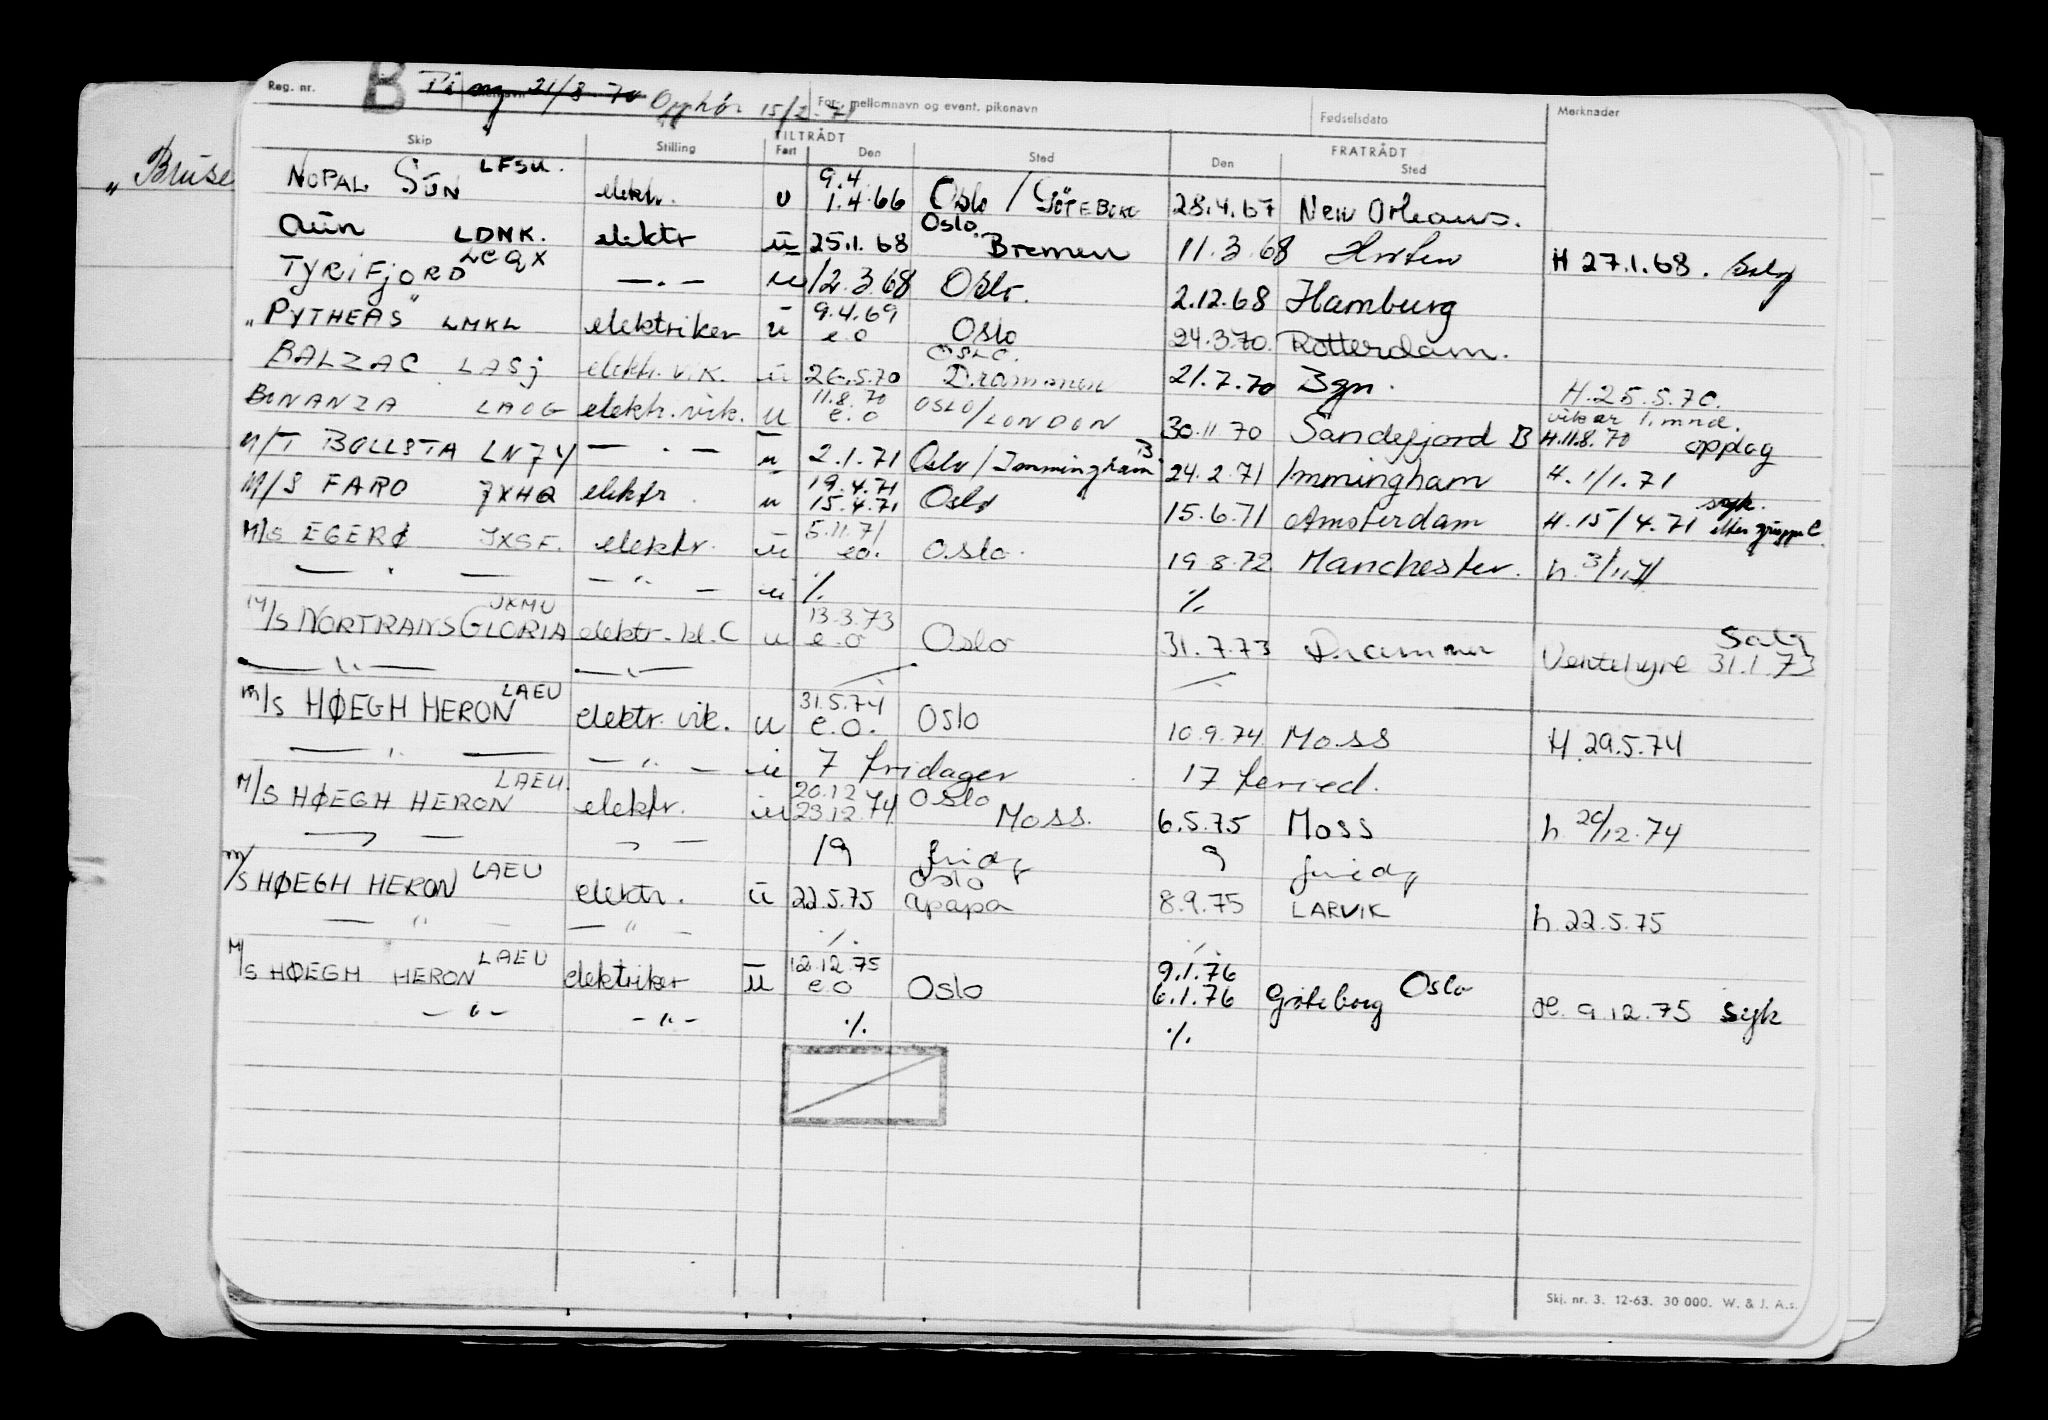 Reg. nr. B På ny 21/8-70 Opphør 15/2-71 For-, mellomnavn og event. pikenavn Fødselsdato Merknader
Skip Stilling Fart TILTRÅDT Den Sted FRATRÅDT Den Sted
"Bruse
NOPAL SUN LFSU. elektr. u 9.4 1.4.66 Oslo / GÖTEBORG 28.4.67 New Orleans.
Aun LDNK. elektr u 25.1.68 Oslo. Bremen 11.3.68 Horten H 27.1.68. Salg
TYRIFJORD LCQX — . — u 12.3.68 Oslo. 2.12.68 Hamburg
"PYTHEAS" LMKL elektriker u 9.4.69 e.o Oslo 24.3.70. Rotterdam.
BALZAC LASJ elektr. vik. u 26.5.70 OSLO. Drammen 21.7.70 Bgn. H. 25.5.70. vikar 1. mnd.
BONANZA LAOG elektr. vik. u 11.8.70 e.o OSLO/LONDON 30.11.70 Sandefjord B H. 11.8.70 opplag
M/T BOLLSTA LN7Y — . — u 2.1.71 Oslo / Immingham B 24.2.71 Immingham H. 1/1.71 syk.
M/S FARO JXHQ elektr. u 19.4.71 15.4.71 Oslo 15.6.71 Amsterdam H. 15/4.71 etter gruppe C.
M/S EGERØ JXSF. elektr. u 5.11.71 eo. Oslo. 19.8.72 Manchester. h. 3/11.71
— " — — " — u ./. ./.
M/S NORTRANS GLORIA JXMU elektr. kl. C u 13.3.73 e.o Oslo 31.7.73 Drammen Ventehyre 31.1.73 Salg
— " — — " — ./. ./.
M/S HØEGH HERON LAEU elektr. vik. u 31.5.74 e.o. Oslo 10.9.74 Moss H. 29.5.74
— " — — " — u 7 fridager 17 feried.
M/S HØEGH HERON LAEU. elektr. u 20.12 23.12.74 Oslo Moss. 6.5.75 Moss h. 20/12.74
— " — — " — 19 frid. 9 frid.
M/S HØEGH HERON LAEU elektr. u 22.5.75 Oslo Apapa 8.9.75 LARVIK h. 22.5.75
— " — — " — ./. ./.
M/S HØEGH HERON LAEU elektriker u 12.12.75 e.o Oslo 9.1.76 6.1.76 Göteborg Oslo H. 9.12.75 syk
— " — — " — ./. ./.
Skj. nr. 3. 12-63. 30 000. W. & J. A.s.